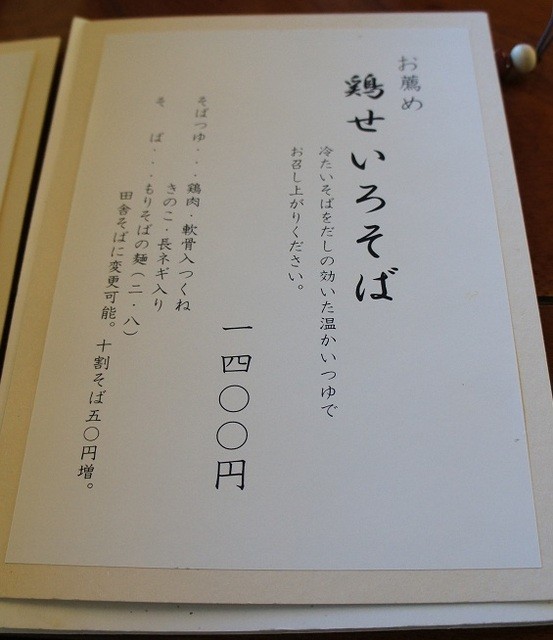 お薦め
鶏せいろそば
冷たいそばをだしの効いた温かいつゆで
お召し上がりください。
一四〇〇円
そばつゆ・・・鶏肉・軟骨入つくね
きのこ・長ネギ入り
そば・・・もりそばの麺(二・八)
田舎そばに変更可能。十割そば五〇円増。